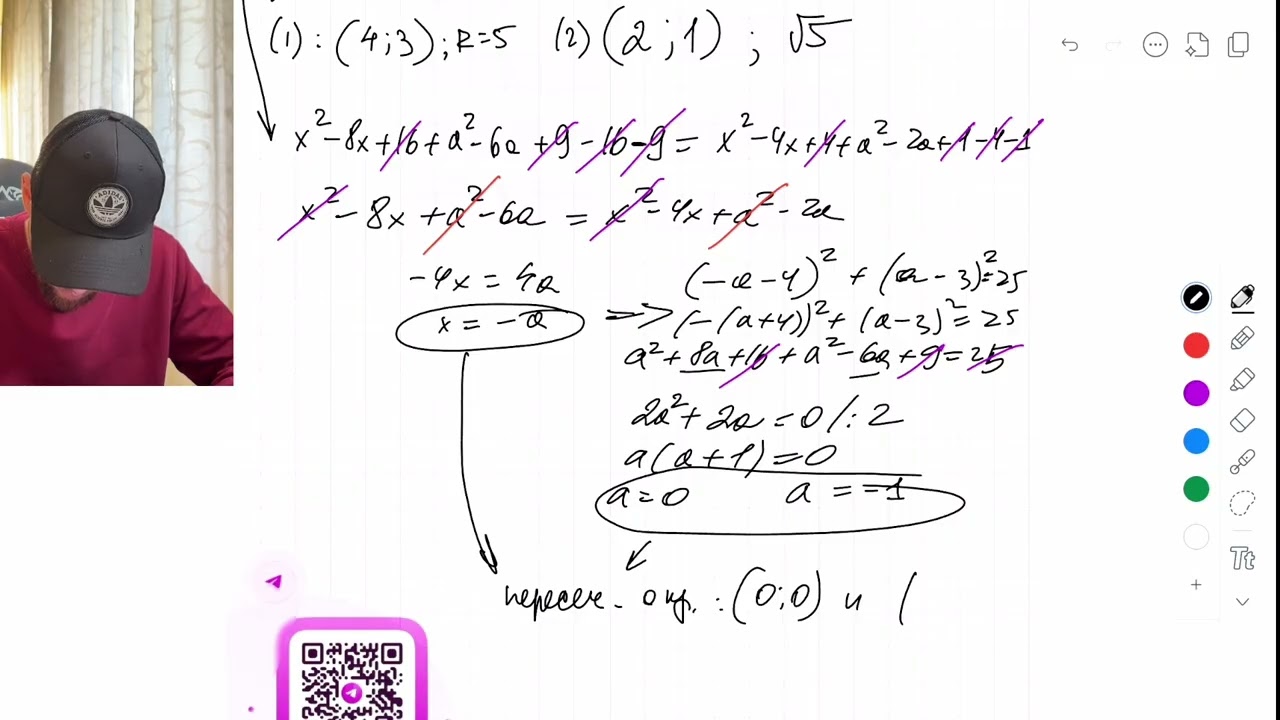 (1) : (4;3); R=5 (2) (2;1) ; √5
x²-8x+16+a²-6a+9-16-9 = x²-4x+4+a²-2a+1-4-1
x²-8x+a²-6a = x²-4x+a²-2a
-4x = 4a
x = -a
(-a-4)² + (a-3)²=25
=> (-(a+4))²+(a-3)²=25
a²+8a+16+a²-6a+9=25
2a²+2a=0 /:2
a(a+1)=0
a=0 a=-1
пересеч. окр. : (0;0) и (
ADIDAS
Tt